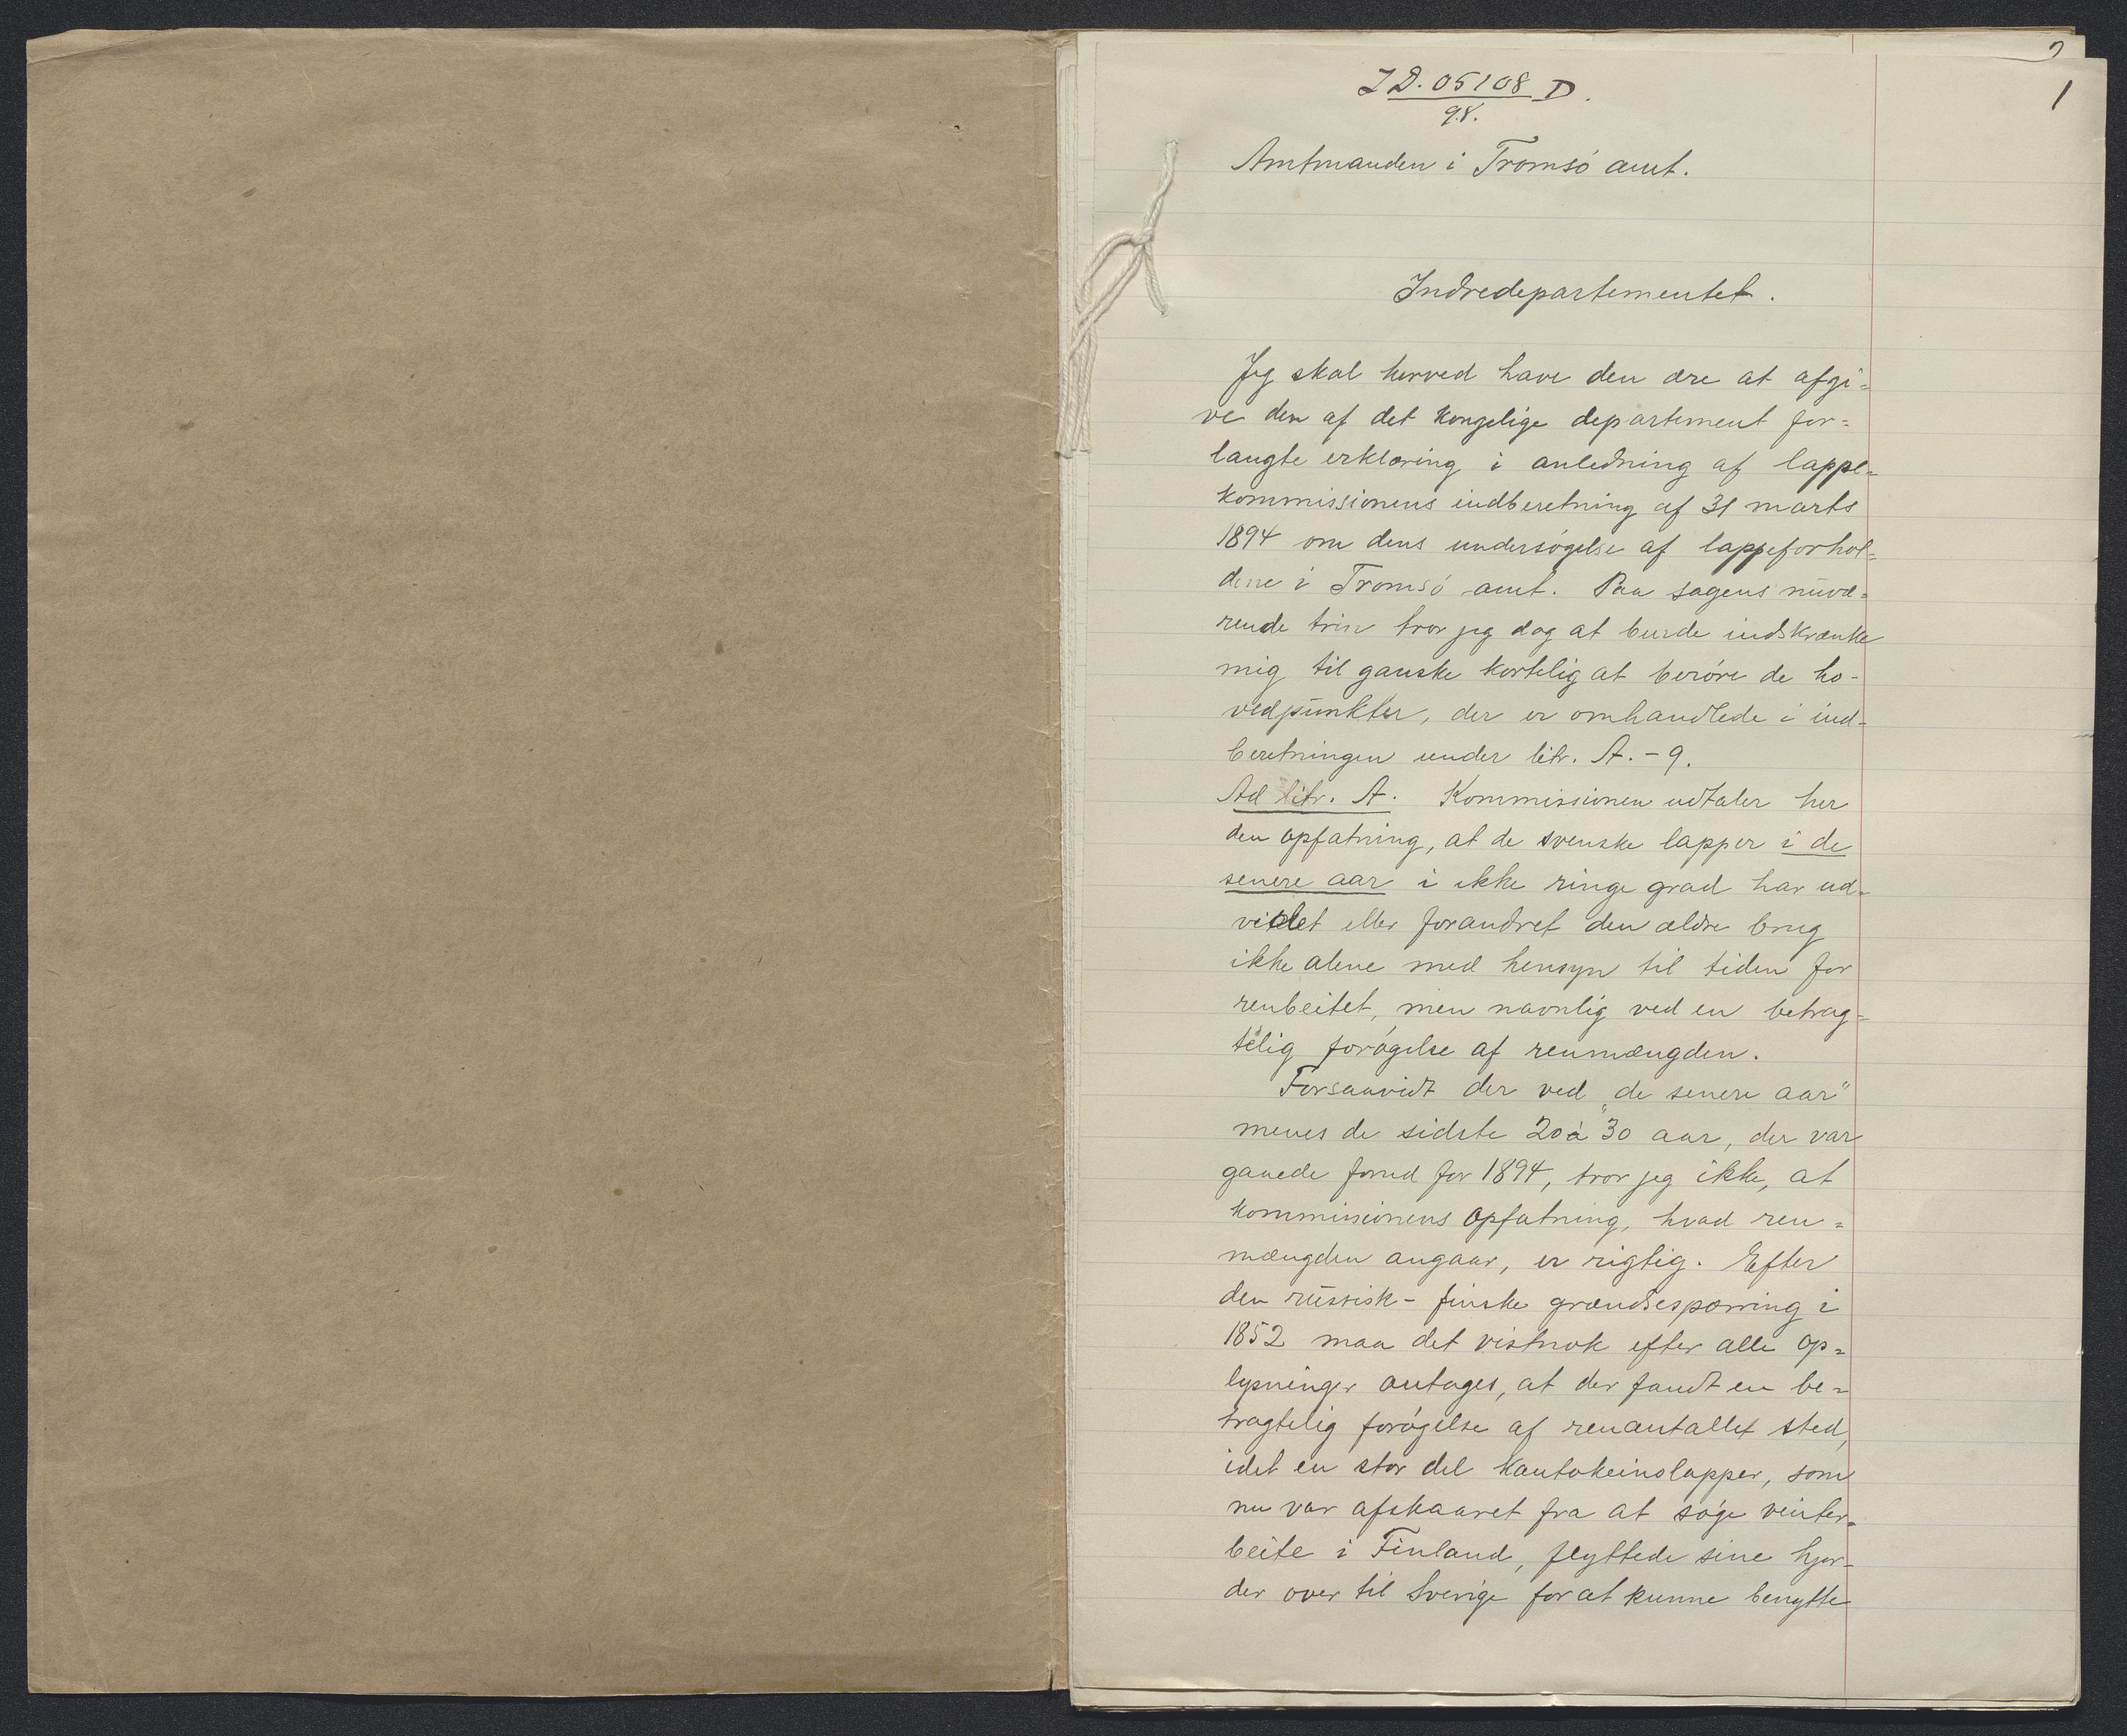 2
1
I D. 05108 D.
98.
Amtmanden i Tromsø amt.
Indredepartementet.
Jeg skal herved have den ære at afgi=
ve den af det kongelige departement for=
langte erklæring i anledning af lappe=
kommissionens indberetning af 31 marts
1894 om dens undersøgelse af lappeforhol=
dene i Tromsø amt. Paa sagens nuvæ=
rende trin tror jeg dog at burde indskrænke
mig til ganske kortelig at berøre de ho-
vedpunkter, der er omhandlede i ind-
beretningen under litr. A.-9.
Ad litr. A. Kommissionen udtaler her
den opfatning, at de svenske lapper i de
senere aar i ikke ringe grad har ud=
videt eller forandret den ældre brug
ikke alene med hensyn til tiden for
renbeitet, men navnlig ved en betrag=
telig forøgelse af renmængden.
Forsaavidt der ved „de senere aar"
menes de sidste 20 à 30 aar, der var
gaaede forud for 1894, tror jeg ikke, at
kommissionens opfatning, hvad ren=
mængden angaar, er rigtig. Efter
den russisk-finske grændsesperring i
1852 maa det vistnok efter alle op=
lysninger antages, at der fandt en be=
tragtelig forøgelse af renantallet sted,
idet en stor del Kautokeinolapper, som
nu var afskaaret fra at søge vinter=
beite i Finland, flyttede sine hjor-
der over til Sverige for at kunne benytte